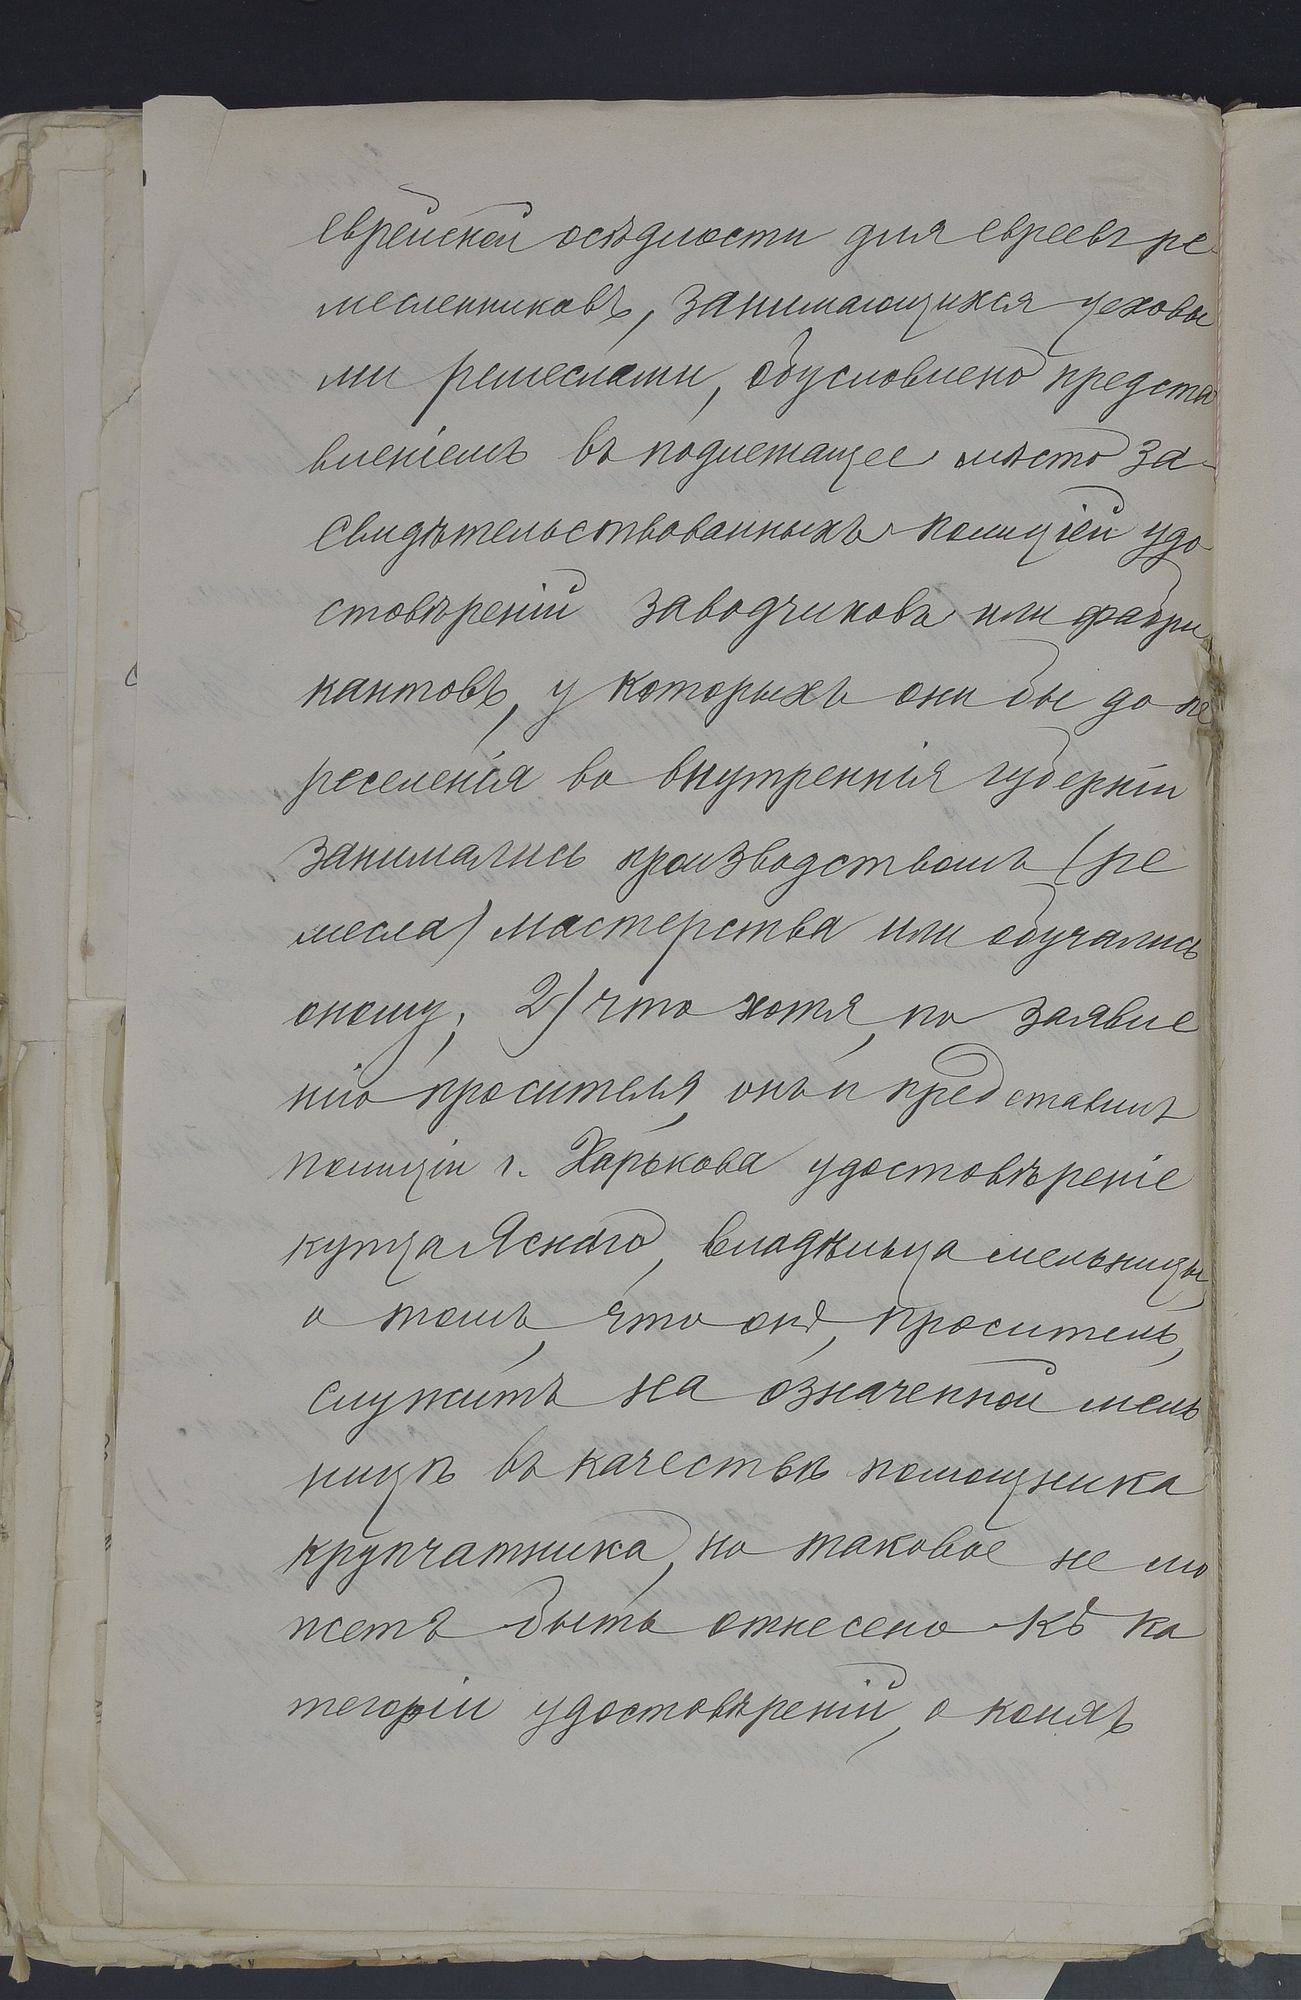 еврейской осѣдлости для евреевъ ре-
месленниковъ, занимающихся цеховы
ми ремеслами, обусловлено предста
вленіемъ въ подлежащее мѣсто за-
свидѣтельствованныхъ полиціей удо
стовѣреній заводчиковъ или фабри
кантовъ, у которыхъ они бы до пе
реселенія во внутреннія губерніи
занимались производствомъ (ре
месла) мастерства или обучались
оному; 2) что хотя, по заявле
нію просителя, онъ и представилъ
полиціи г. Харькова удостовѣреніе
купца Яснаго, владѣльца мельницы,
о томъ, что онъ, проситель,
служитъ на означенной мель
ницѣ въ качествѣ помощника
крупчатника, но таковое не мо
жетъ быть отнесено къ ка
тегоріи удостовѣреній, о коихъ